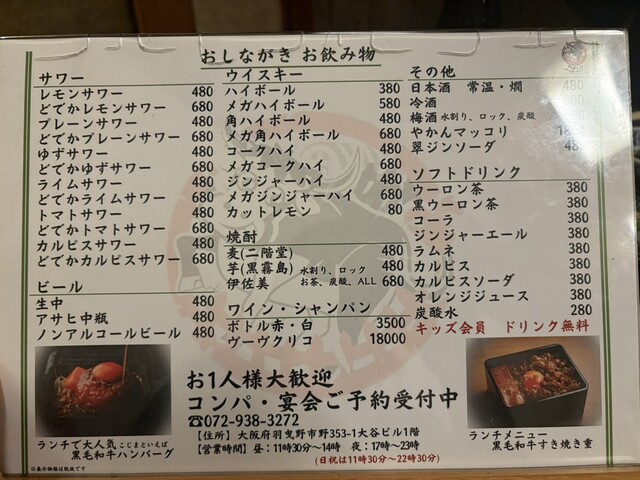 おしながき お飲み物
サワー
レモンサワー 480
どでかレモンサワー 680
プレーンサワー 480
どでかプレーンサワー 680
ゆずサワー 480
どでかゆずサワー 680
ライムサワー 480
どでかライムサワー 680
トマトサワー 480
どでかトマトサワー 680
カルピスサワー 480
どでかカルピスサワー 680
ビール
生中 480
アサヒ中瓶 480
ノンアルコールビール 480
ウイスキー
ハイボール 380
メガハイボール 580
角ハイボール 480
メガ角ハイボール 680
コークハイ 480
メガコークハイ 680
ジンジャーハイ 480
メガジンジャーハイ 680
カットレモン 80
焼酎
麦(二階堂) 480
芋(黒霧島) 水割り、ロック 480
伊佐美 お茶、炭酸、ALL 680
ワイン・シャンパン
ボトル赤・白 3500
ヴーヴクリコ 18000
その他
日本酒 常温・燗 480
冷酒
梅酒 水割り、ロック、炭酸
やかんマッコリ
翠ジンソーダ
ソフトドリンク
ウーロン茶 380
黒ウーロン茶 380
コーラ 380
ジンジャーエール 380
ラムネ 380
カルピス 380
カルピスソーダ 380
オレンジジュース 380
炭酸水 280
キッズ会員 ドリンク無料
ランチで大人気 こじまといえば
黒毛和牛ハンバーグ
※表示価格は税抜です
お1人様大歓迎
コンパ・宴会ご予約受付中
☎072-938-3272
【住所】 大阪府羽曳野市野353-1大谷ビル1階
【営業時間】 昼:11時30分〜14時 夜:17時〜23時
(日祝は11時30分〜22時30分)
ランチメニュー
黒毛和牛すき焼き重